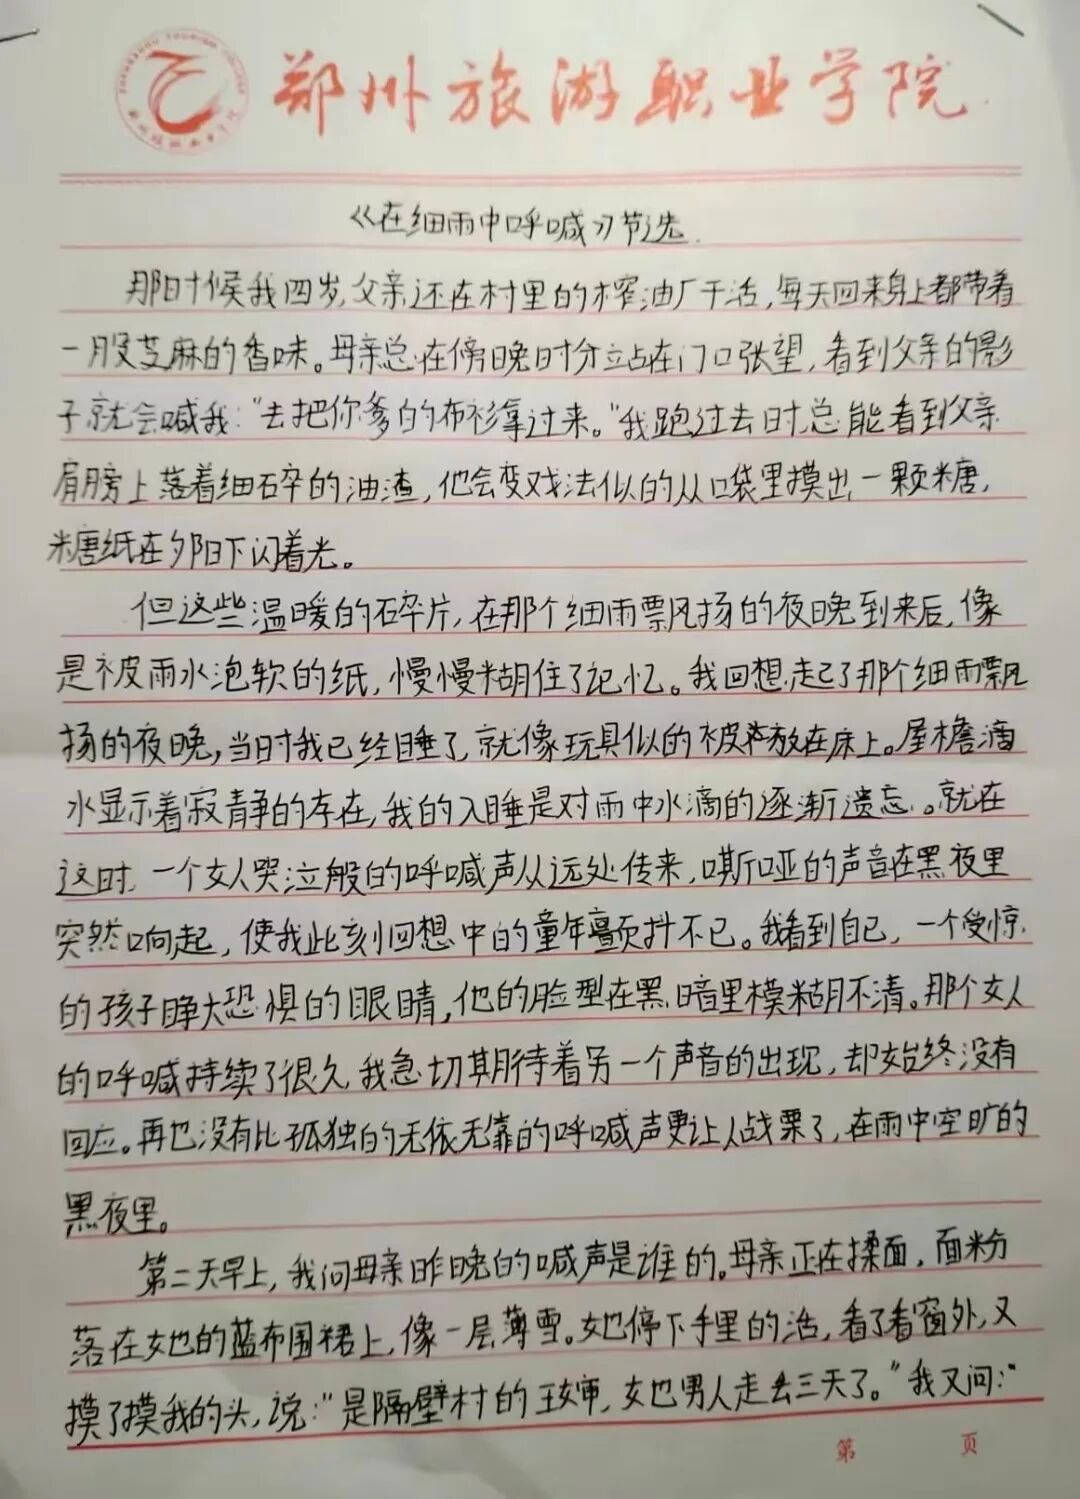 郑州旅游职业学院
《在细雨中呼喊》节选
那时候我四岁,父亲还在村里的榨油厂干活,每天回来身上都带着
一股芝麻的香味。母亲总在傍晚时分立占在门口张望,看到父亲的影
子就会喊我:"去把你爹的布衫拿过来。"我跑过去时,总能看到父亲
肩膀上落着细碎的油渣,他会变戏法似的从口袋里摸出一颗糖,
糖纸在夕阳下闪着光。
但这些温暖的碎片,在那个细雨飘扬的夜晚到来后,像
是被雨水泡软的纸,慢慢糊住了记忆。我回想起了那个细雨飘
扬的夜晚,当时我已经睡了,就像玩具似的被放在床上。屋檐滴
水显示着寂静的存在,我的入睡是对雨中水滴的逐渐遗忘。就在
这时,一个女人哭泣般的呼喊声从远处传来,嘶哑的声音在黑夜里
突然响起,使我此刻回想中的童年颤抖不已。我看到自己,一个受惊
的孩子睁大恐惧的眼睛,他的脸型在黑暗里模糊不清。那个女人
的呼喊持续了很久,我急切期待着另一个声音的出现,却始终没有
回应。再也没有比孤独的无依无靠的呼喊声更让人战栗了,在雨中空旷的
黑夜里。
第二天早上,我问母亲昨晚的喊声是谁的。母亲正在揉面,面粉
落在她的蓝布围裙上,像一层薄雪。她停下手里的活,看了看窗外,又
摸了摸我的头,说:"是隔壁村的王婶,她男人走去三天了。"我又问:"
第 页